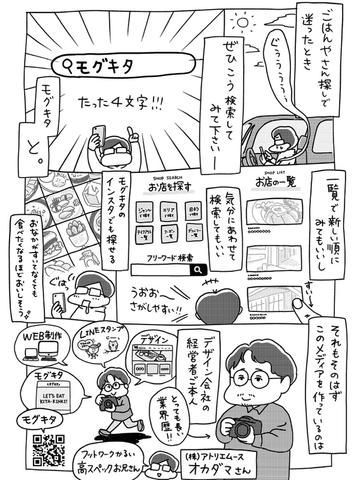 ごはんやさん探しで
迷ったとき
ぐぅうぅぅぅ
ぜひこう検索して
みて下さい
モグキタ
たった4文字!!!
モグキタ
と。
一覧で新しい順に
みてもいいし
SHOP LIST
お店の一覧
気分にあわせて
検索してもいい
SHOP SEARCH
お店を探す
ジャンル
で探す
エリア
で探す
目的
で探す
フリーワード検索
うおお〜
さがしやすい!!
すいーっ
モグキタの
インスタでも探せる
ぐはっ
おなかがすいてなくても
食べたくなるほどおいしそう。
それもそのはず
このメディアを作っているのは
デザイン会社の
経営者ご本人
(株)アトリエムース
オカダマさん
WEB制作
LINEスタンプ
デザイン
モグキタ
LET'S EAT
KITA-KINKI!
モグキタ
とっても長い
業界歴!!
フットワークかるい
高スペックお兄さん